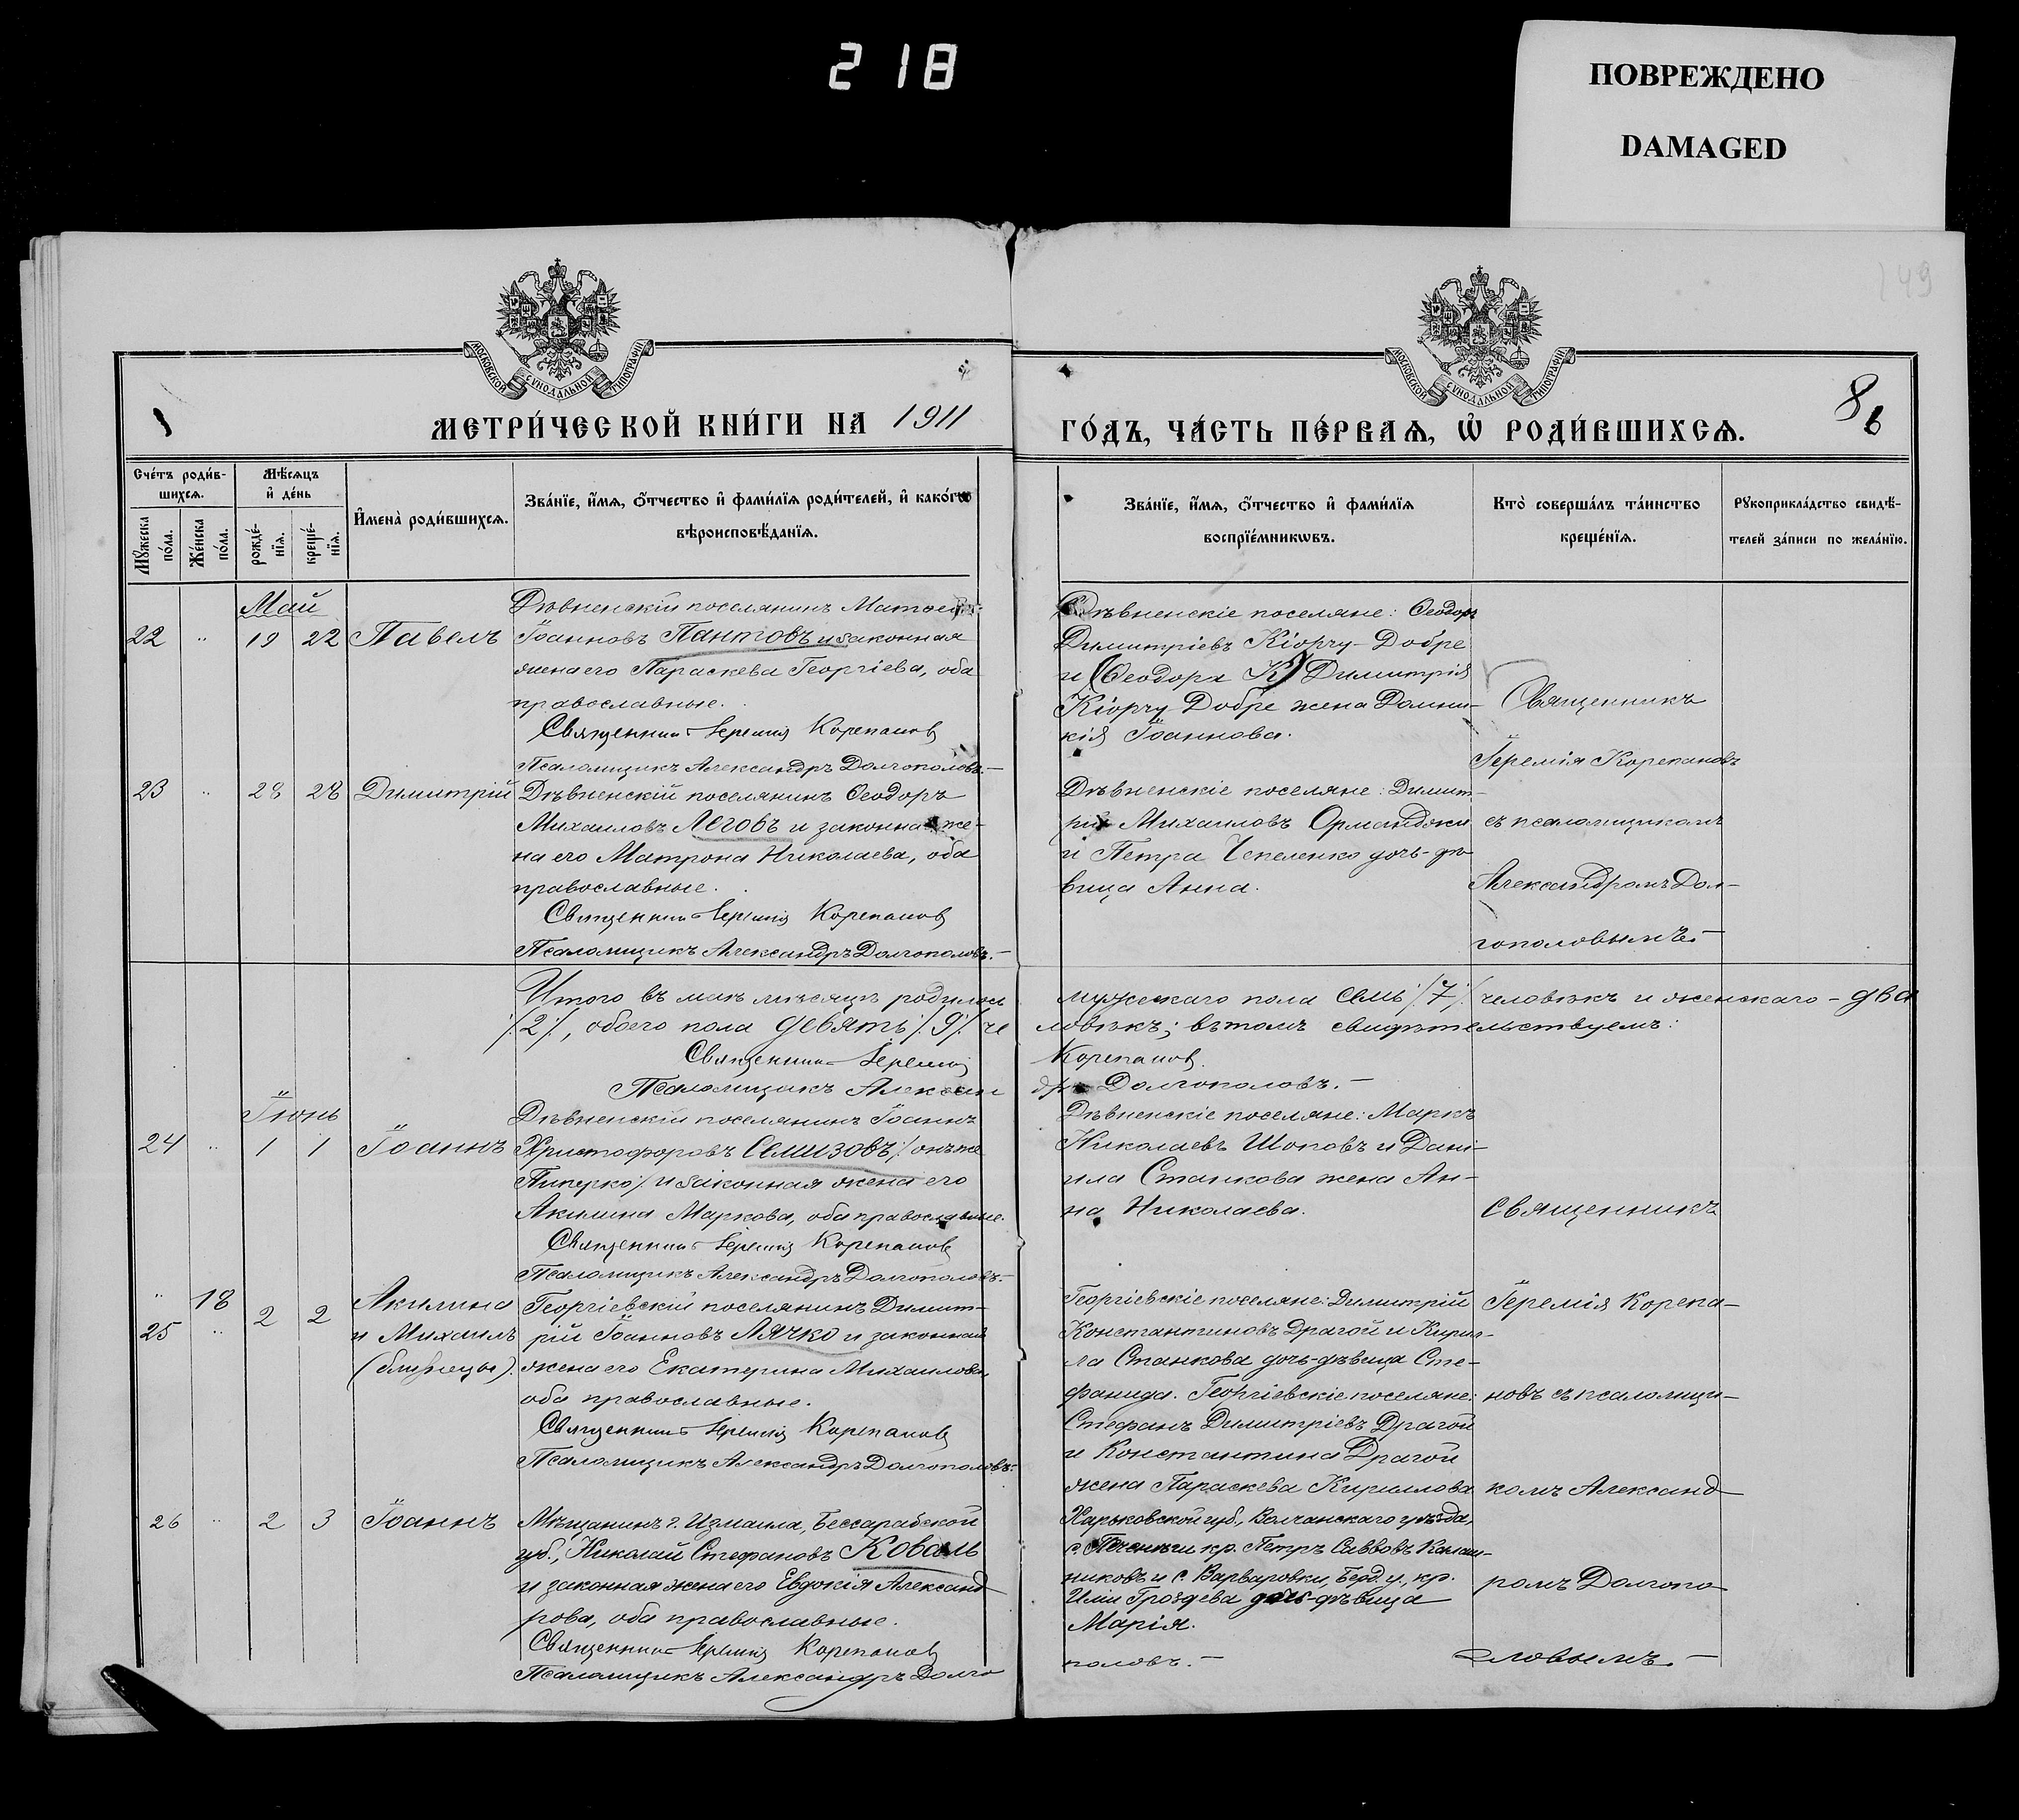 218
ПОВРЕЖДЕНО
DAMAGED
149
МОСКОВСКОЙ СѴНОДАЛЬНОЙ ТИПОГРАФІИ
МОСКОВСКОЙ СѴНОДАЛЬНОЙ ТИПОГРАФІИ
МЕТРИ́ЧЕСКОЙ КНИ́ГИ НА 1911
ГО́ДЪ, ЧА́СТЬ ПЕ́РВАѦ, Ѡ҆ РОДИ́ВШИХСѦ.
8
Сче́тъ роди́в-
шихсѧ.
Мꙋ́жеска
по́ла.
Же́нска
по́ла.
Мѣ́сѧцъ
и҆ де́нь
рожде́-
нїѧ.
креще́-
нїѧ.
И҆мена̀ роди́вшихсѧ.
Зва́нїе, и҆́мѧ, ѻ҆́тчество и҆ фами́лїѧ роди́телей, и҆ како́гѡ
вѣроисповѣ́данїѧ.
Зва́нїе, и҆́мѧ, ѻ҆́тчество и҆ фами́лїѧ
воспрїе́мникѡвъ.
Кто̀ соверша́лъ та́инство
креще́нїѧ.
Рꙋкоприкла́дство свидѣ́-
телей за́писи по жела́нїю.
Май
22 " 19 22 Павелъ
Дѣвненскій поселянинъ Матѳей
Іоанновъ Пантовъ и законная
жена его Параскева Георгіева, оба
православные.
Священник Іеремия Корепанов
Псаломщикъ Александръ Долгополовъ.
Дѣвненскіе поселяне: Ѳеодоръ
Димитріевъ Кіорчу-Добре
и (Ѳеодора К) Димитрія
Кіорчу Добре жена Домни-
кія Іоаннова.
Священникъ
Іеремія Корепановъ
съ псаломщикомъ
Александромъ Дол-
гополовымъ.
23 " 28 28 Димитрій
Дѣвненскій поселянинъ Ѳеодоръ
Михаиловъ Леговъ и законная же-
на его Матрона Николаева, оба
православные.
Священник Іеремия Корепанов
Псаломщикъ Александръ Долгополовъ.
Дѣвненскіе поселяне: Димит-
рій Михаиловъ Орманджи
и Петра Чепеленко дочь-дѣ-
вица Анна.
Итого въ маѣ мѣсяцѣ родилось мужескаго пола семь /7/ человѣкъ и женскаго - два
/2/, обоего пола девять /9/ человѣкъ; въ томъ свидѣтельствуемъ:
Священник Іеремия Корепанов
Псаломщикъ Александръ Долгополовъ.
Іюнь
24 " 1 1 Іоаннъ
Дѣвненскій поселянинъ Іоаннъ
Христофоровъ Семизовъ /онъ же
Пиперко/ и законная жена его
Акилина Маркова, оба православные.
Священник Іеремия Корепанов
Псаломщикъ Александръ Долгополовъ.
Дѣвненскіе поселяне: Маркъ
Николаевъ Шоповъ и Дані-
ила Станкова жена Ан-
на Николаева.
Священникъ
Іеремія Корепа-
новъ съ псаломщи-
комъ Александ-
ромъ Долгопо-
ловымъ.
" 18
25 "
2 2
Акилина
и Михаилъ
(близнецы).
Георгіевскій поселянинъ Димит-
рій Іоанновъ Лячко и законная
жена его Екатерина Михаилова,
оба православные.
Священник Іеремия Корепанов
Псаломщикъ Александръ Долгополовъ.
Георгіевскіе поселяне: Димитрій
Константиновъ Драгой и Кирил-
ла Станкова дочь-дѣвица Сте-
фанида. Георгіевскіе поселяне:
Стефанъ Димитріевъ Драгой
и Константина Драгой
жена Параскева Кириллова
26 " 2 3 Іоаннъ
Мѣщанинъ г. Измаила, Бессарабской
губ., Николай Стефановъ Коваль
и законная жена его Евдокія Александ-
рова, оба православные.
Священник Іеремия Корепанов
Псаломщикъ Александръ Долгополовъ.
Харьковской губ., Волчанскаго уѣзда,
с. Печенѣги кр. Петръ Савовъ Калаш-
никовъ и с. Варваровки, Берд. у., кр.
Иліи Гроздева дочь-дѣвица
Марія.